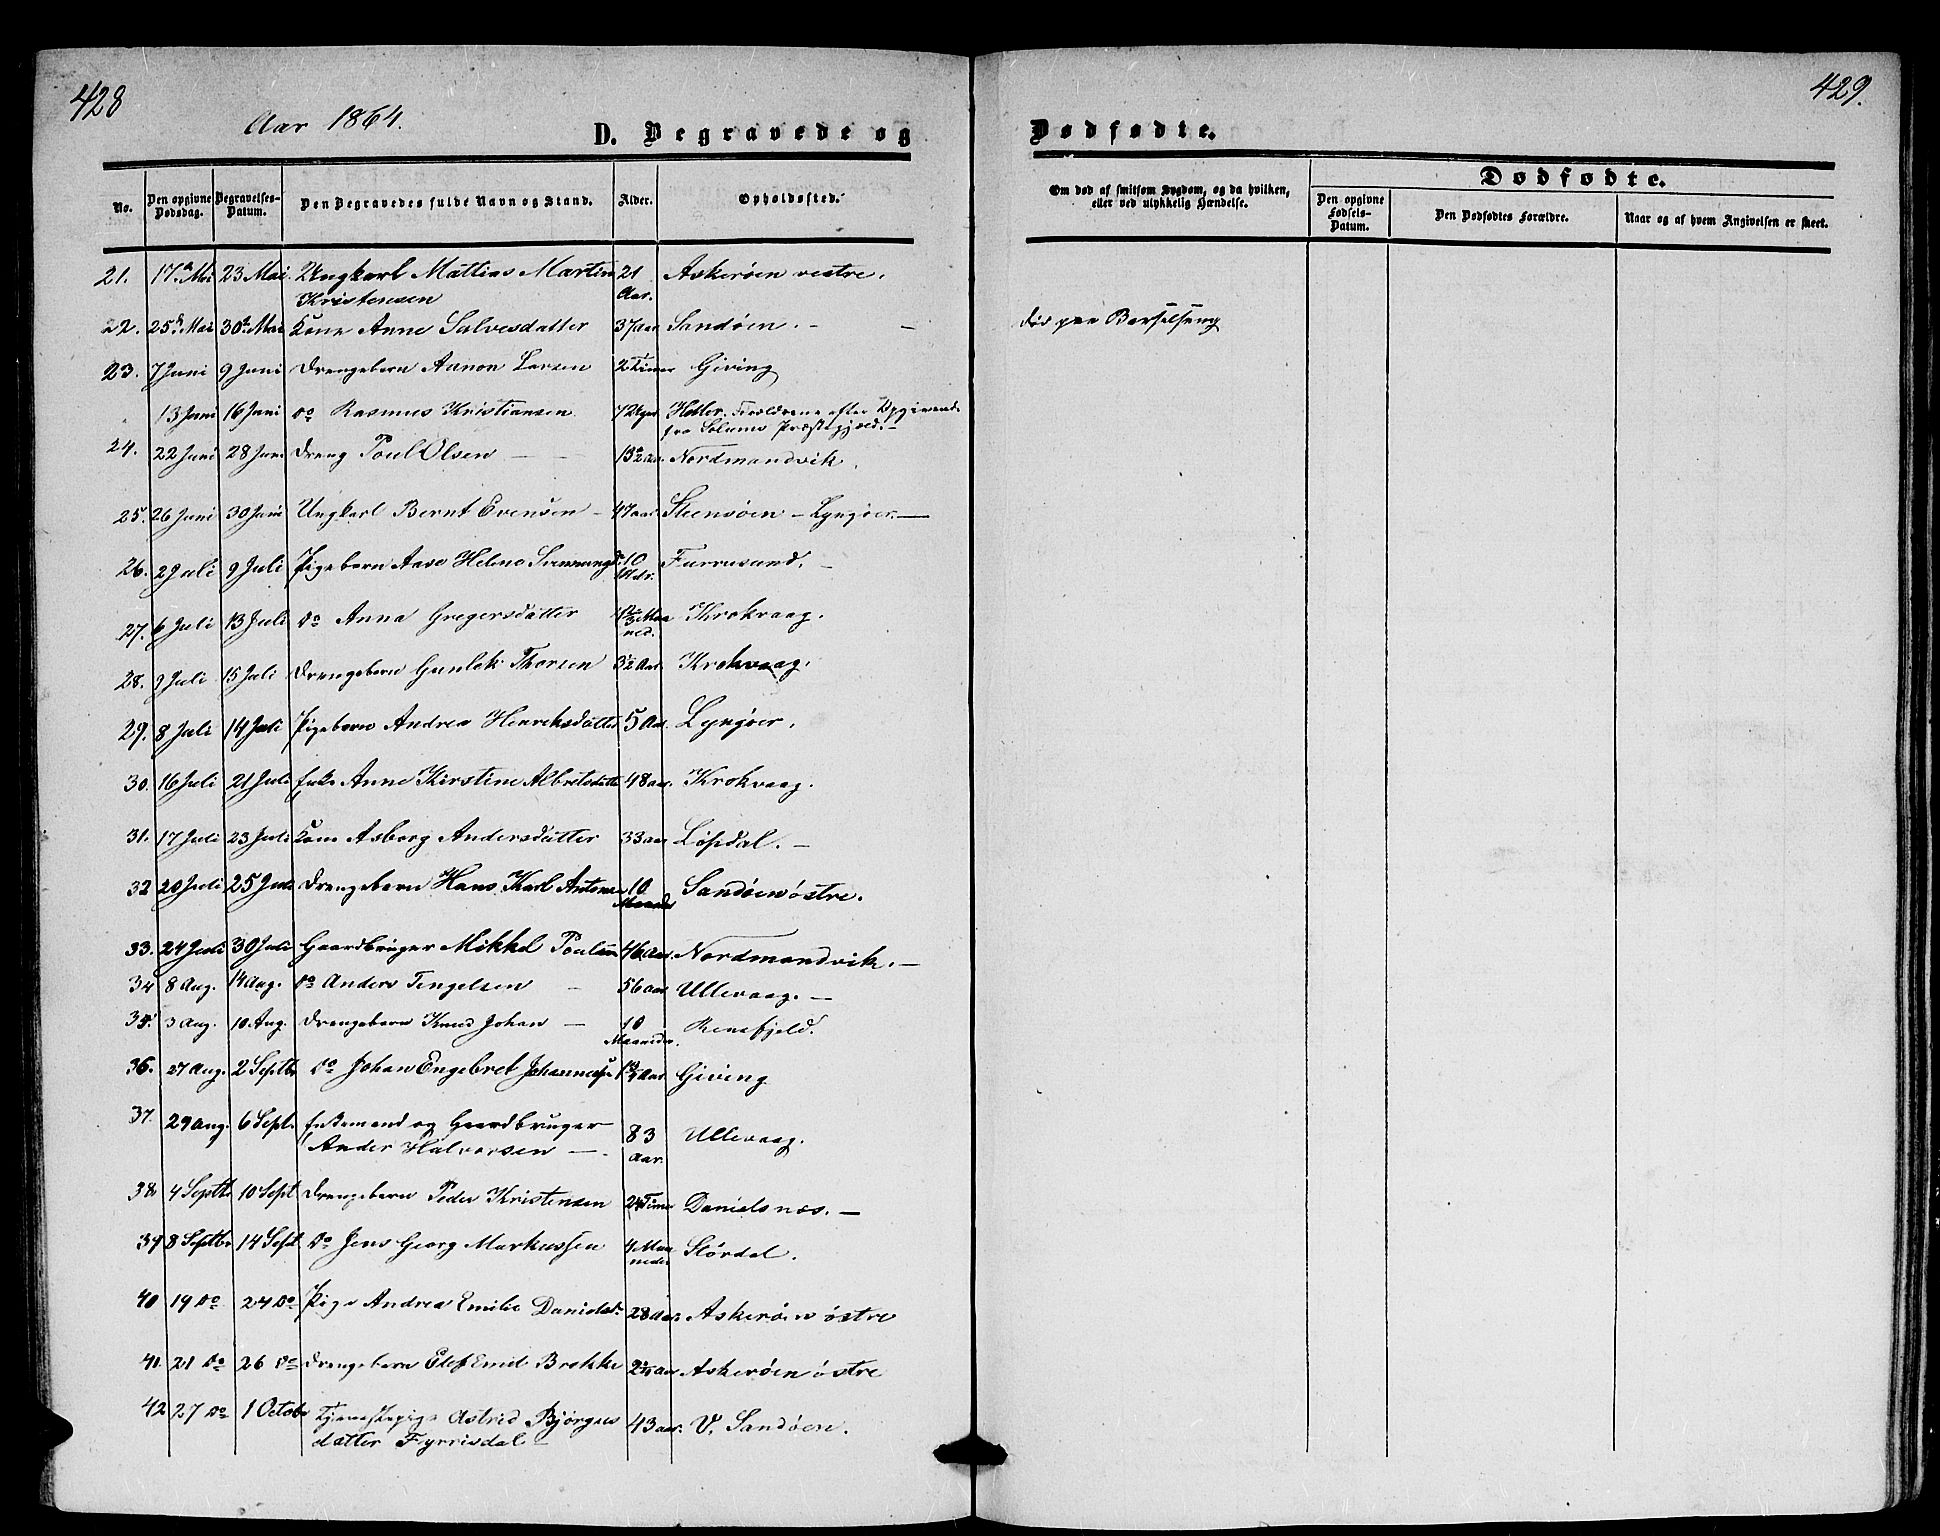 428
Aar 1864.
D. Begravede og
No.
Den opgivne Dødsdag.
Begravelses-Datum.
Den Begravedes fulde Navn og Stand.
Alder.
Opholdssted.
21. 17de Mai 23 Mai Ungkarl Mattias Martin 21 Askerøen vestre.
Kristensen Aar.
22. 25de Mai 30te Mai Kone Anne Salvesdatter 37 Aar Sandøen. -
23. 7 Juni 9 Juni Drengebarn Aanon Larsen 2 Timer Giving
13 Juni 16 Juni do Rasmus Kristiansen 7 Uger Holler. Forældrene efter Opgivende
fra Solums Præstegjæld. -
24. 22 Juni 28 Juni Dreng Poul Olsen 13½ Aar Nordmandvik.
25. 26 Juni 30 Juni Ungkarl Bernt Evensen - 47 aar Steensøen - Lyngøer. -
26. 2 Juli 9 Juli Pigebarn Aase Helene 10 Furresund. -
Mdr.
27. 6 Juli 13 Juli do Anna Gregersdatter Maa Krokvaag.
ned.
28. 9 Juli 15 Juli Drengebarn Gunlek Thorsen 3½ Aar Krokvaag.
29. 8 Juli 14 Juli Pigebarn Andrea Henriksdatter 5 Aar. Lyngøer.
30. 16 Juli 21 Juli Enke Anne Kirstine Albretsdatter 48 aar. Krokvaag.
31. 17 Juli 23 Juli Kone Asborg Andersdatter 33 aar Løvdal. -
32 20 Juli 25 Juli Drengebarn Hans Karl Antonsen 10 Sandøen østre.
Maaneder
33. 24 Juli 30 Juli Gaardbruger Mikkel Poulsen 46 Aar. Nordmandvik. -
34 8 Aug. 14 Aug. do Anders Tengelsen - 56 aar Ullevaag. -
35. 3 Aug. 10 Aug. Drengebarn Knud Johan - 10 Renefjeld.
Maaneder.
36. 27 Aug. 2 Septbr do Johan Engebret Johannesen Aar Giving
37. 29 Aug. 6 Sept. Enkemand og Gaardbruger 83 Ullevaag.
Ander Halvorsen - aar.
38 4 Septbr 10 Sept Drengebarn Peder Kristensen 24 Timer Danielsnæs. -
39 8 Septbr 14 Sept do Jens Georg Markussen 4 Maa Slørdal.
neder
40 19 do 24 do Pige Andrea Emilie Danielsdr. 28 Aar Askerøen østre
41. 21 do 26 do Drengebarn Elef Emil Brekke Aar Askerøen østre
42 27 do 1 Octobr Tjenestepige Astrid Bjørgus 43 aar. V. Sandøen.
datter Fyrrisdal -
429.
Dødfødte.
Om død af smitsom Sygdom, og da hvilken, eller ved ulykkelig Hændelse.
Dødfødte.
Den opgivne Fødsels-Datum.
Den Dødfødtes Forældre.
Naar og af hvem Angivelsen er skeet.
død paa Barselseng